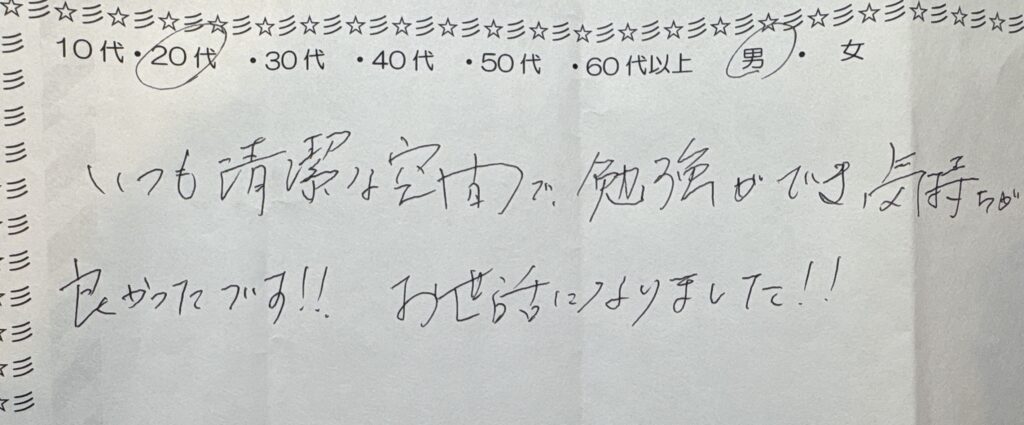 10代・20代・30代・40代・50代・60代以上 男・女
いつも清潔な空間で、勉強ができ、気持ちが
良かったです!! お世話になりました!!